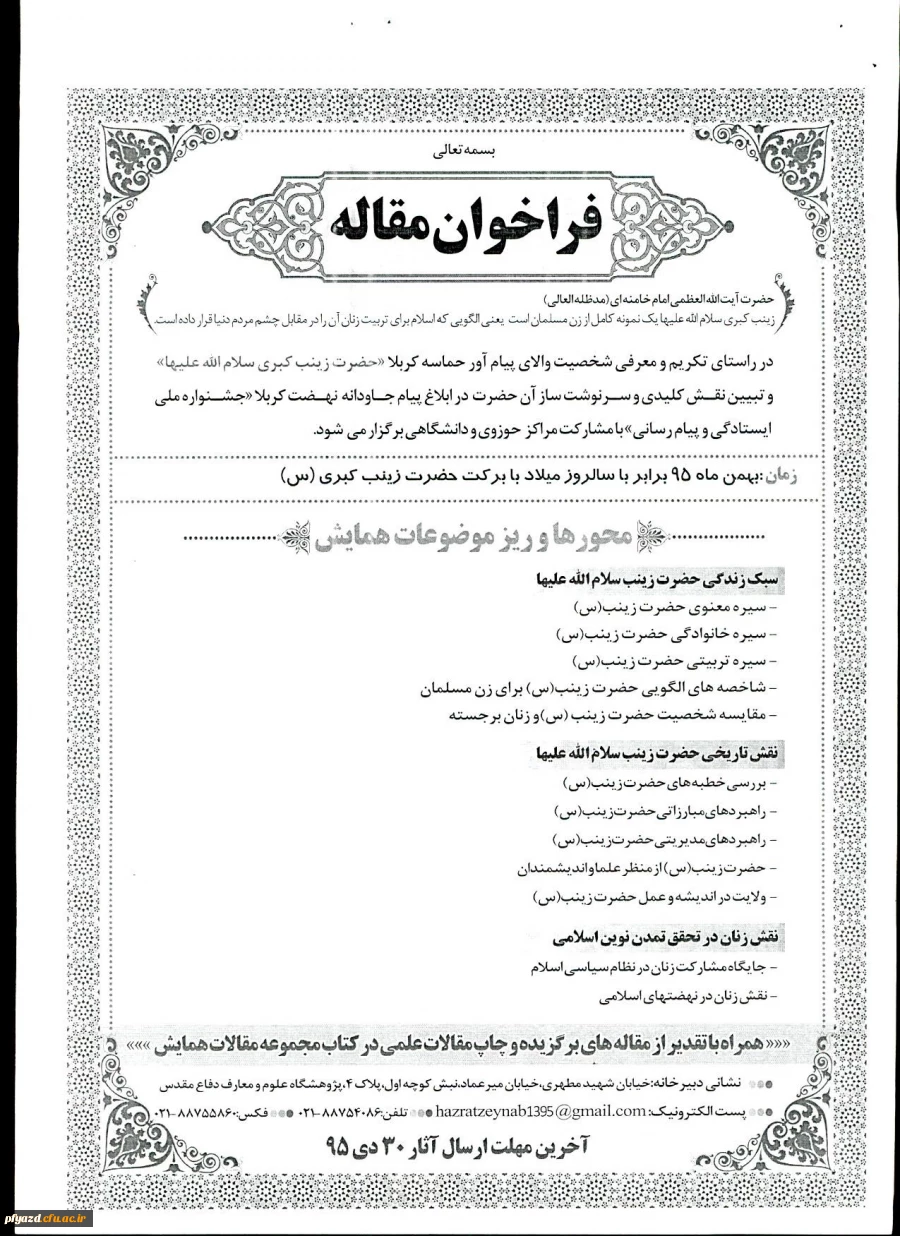 بسمه تعالی
فراخوان مقاله
حضرت آیت الله العظمی امام خامنه ای (مدظله العالی)
زینب کبری سلام الله علیها یک نمونه کامل از زن مسلمان است یعنی الگویی که اسلام برای تربیت زنان آن را در مقابل چشم مردم دنیا قرار داده است.
در راستای تکریم و معرفی شخصیت والای پیام آور حماسه کربلا «حضرت زینب کبری سلام الله علیها»
و تبیین نقش کلیدی و سرنوشت ساز آن حضرت در ابلاغ پیام جاودانه نهضت کربلا «جشنواره ملی
ایستادگی و پیام رسانی» با مشارکت مراکز حوزوی و دانشگاهی برگزار می شود.
زمان: بهمن ماه ۹۵ برابر با سالروز میلاد با برکت حضرت زینب کبری (س)
محورها و ریز موضوعات همایش
سبک زندگی حضرت زینب سلام الله علیها
- سیره معنوی حضرت زینب(س)
- سیره خانوادگی حضرت زینب(س)
- سیره تربیتی حضرت زینب(س)
- شاخصه های الگویی حضرت زینب(س) برای زن مسلمان
- مقایسه شخصیت حضرت زینب (س)و زنان برجسته
نقش تاریخی حضرت زینب سلام الله علیها
- بررسی خطبه‌های حضرت زینب(س)
- راهبردهای مبارزاتی حضرت زینب(س)
- راهبردهای مدیریتی حضرت زینب(س)
- حضرت زینب(س) از منظر علما و اندیشمندان
- ولایت در اندیشه و عمل حضرت زینب(س)
نقش زنان در تحقق تمدن نوین اسلامی
- جایگاه مشارکت زنان در نظام سیاسی اسلام
- نقش زنان در نهضتهای اسلامی
««« همراه با تقدیر از مقاله های برگزیده و چاپ مقالات علمی در کتاب مجموعه مقالات همایش »»»
نشانی دبیرخانه: خیابان شهید مطهری، خیابان میرعماد، نبش کوچه اول، پلاک ۴، پژوهشگاه علوم و معارف دفاع مقدس
پست الکترونیک: hazratzeynab1395@gmail.com تلفن: ۰۲۱-۸۸۷۵۴۰۸۶ فکس: ۰۲۱-۸۸۷۵۵۸۶۰
آخرین مهلت ارسال آثار ۳۰ دی ۹۵
pfyazd.cfu.ac.ir